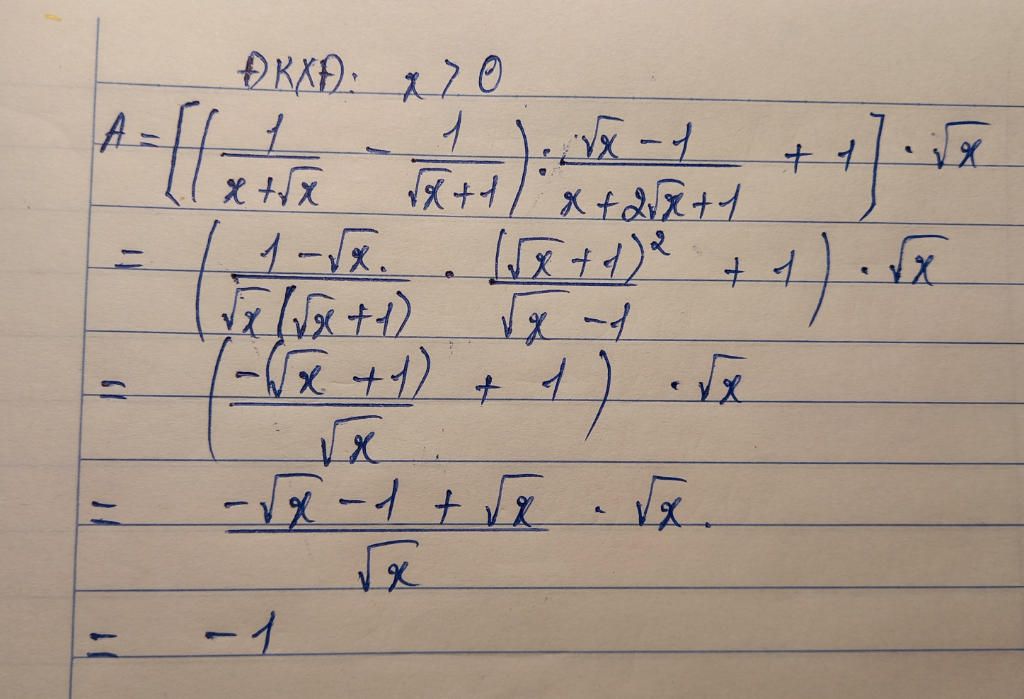 ĐKXĐ: x > 0
A = [(1/(x+√x) - 1/(√x+1)) : (√x - 1)/(x+2√x+1) + 1] · √x
= ((1 - √x)/(√x(√x+1)) · (√x+1)²/(√x - 1) + 1) · √x
= (-(√x + 1)/√x + 1) · √x
= (-√x - 1 + √x)/√x · √x.
= -1